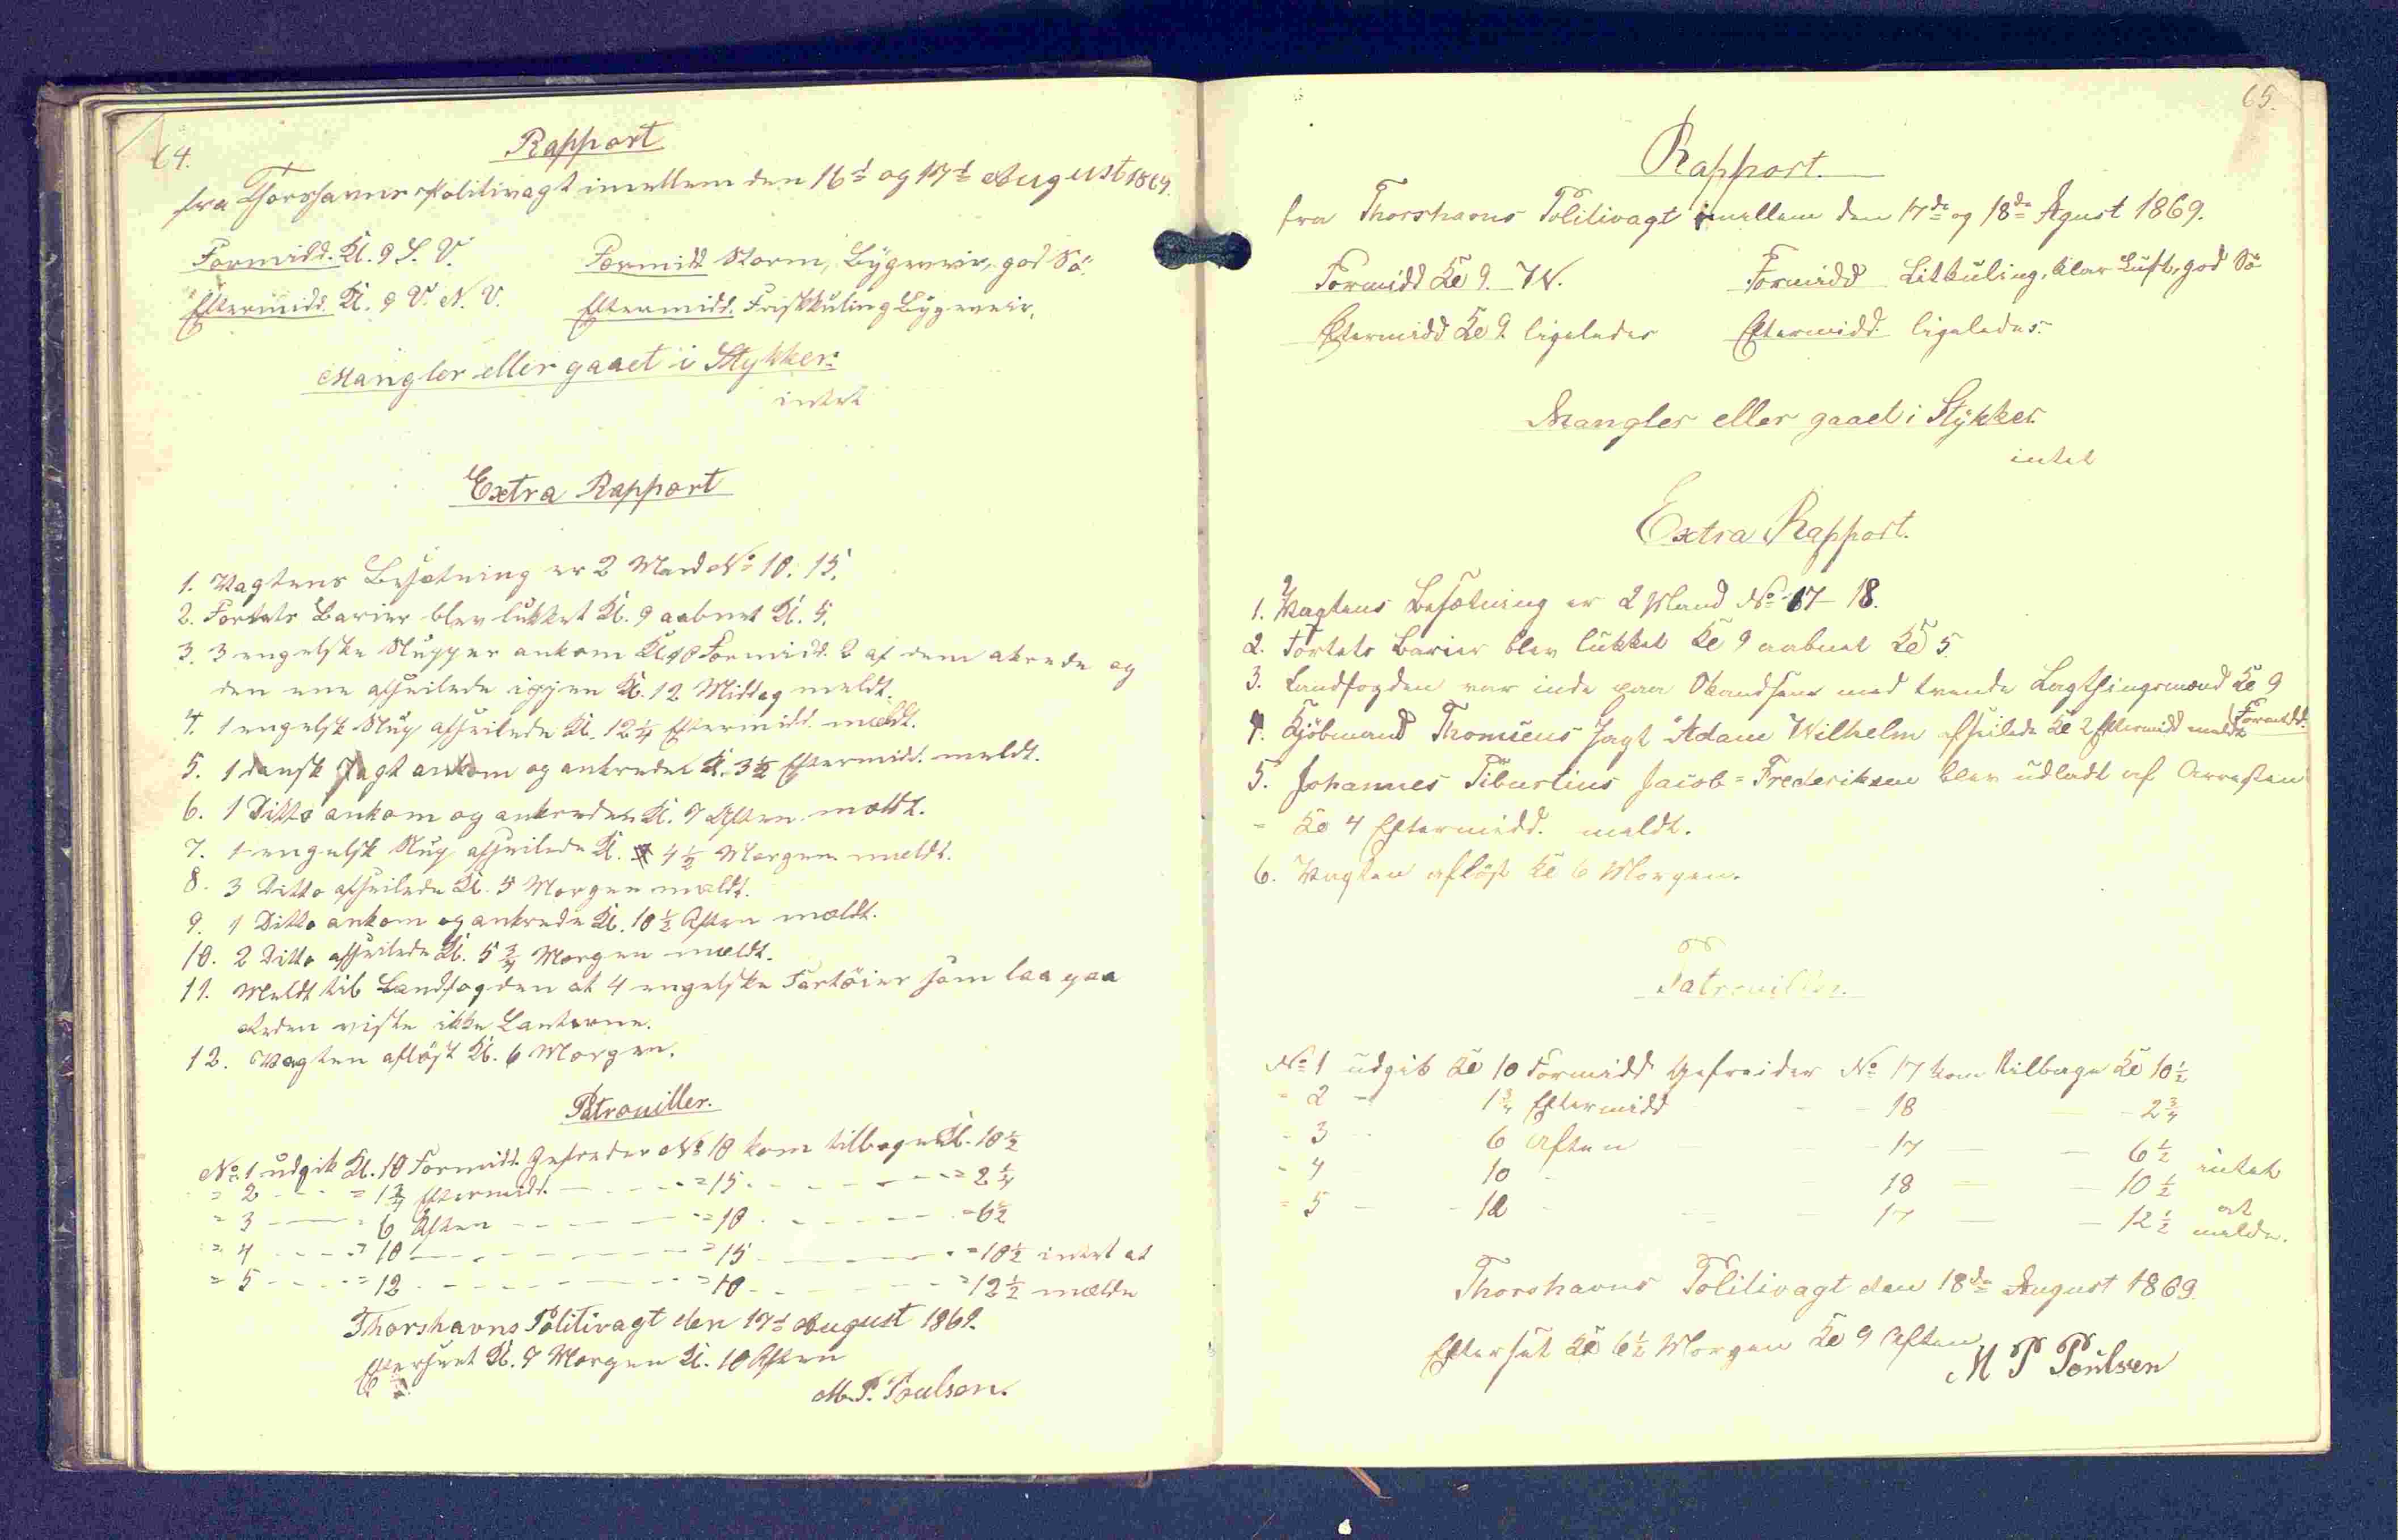 64.
Rapport
fra Thorshavns Politivagt imellem den 16d og 17d August 1869.
Formidd. Kl. 9 S. V. Formidd Storm, Bygeveir, god Sö.
Eftermidd. Kl. 9 V. N. V. Eftermidd. Friskkuling Bygeveir.
Mangler eller gaaet i Stykker:
intet
Extra Rapport
1. Vagtens Besætning er 2 Mand No 10. 15.
2. Fortets Barier blev lukket Kl. 9 aabnet Kl. 5.
3. 3 engelske Slupper ankom Kl 10 Formidd. 2 af dem akrede og
den ene afseilede igjen Kl. 12 Middag meldt.
4. 1 engelsk Slup afseilede Kl. 12 1/4 Eftermidd. meldt.
5. 1 dansk Jagt ankom og ankrede Kl. 3 1/2 Eftermidd. meldt.
6. 1 Ditto ankom og ankrede Kl. 7 Aften meldt.
7. 1 engelsk Slup afseilede Kl. 4 1/2 Morgen meldt.
8. 3 Ditto afseilede Kl. 5 Morgen meldt.
9. 1 Ditto ankom og ankrede Kl. 10 1/2 Aften mældt.
10. 2 Ditto afseilede Kl. 5 3/4 Morgen meldt.
11. Meldt til Landfogden at 4 engelske Fartöier som laa paa
Reden viste ikke Lanterne.
12. Vagten aflöst Kl. 6 Morgen.
Patrouiller.
No 1 udgik Kl. 10 Formidd. Gefreider No 10 kom tilbage Kl. 10 1/2
= 2 - - = 1 3/4 Eftermidd. - - - = 15 - - - = 2 1/4
= 3 - - = 6 Aften - - - = 10 - - - = 6 1/2
= 4 - - = 10 - - - = 15 - - - = 10 1/2 intet at
= 5 - - = 12 - - - = 10 - - - = 12 1/2 mælde
Thorshavns Politivagt den 17d August 1869.
Efterseet Kl. 7 Morgen Kl. 10 Aften
M. P. Poulsen.
65.
Rapport.
fra Thorshavns Politivagt imellem den 17de og 18de Agust 1869.
Formidd Kl 9. W. Formidd Litkuling, klar Luft, god Sö
Eftermidd Kl 9 ligeledes Eftermidd. ligeledes.
Mangler eller gaaet i Stykker.
intet
Extra Rapport.
1. Vagtens Besætning er 2 Mand No 17 - 18.
2. Fortets Barier blev lukket Kl 9 aabnet Kl 5.
3. Landfogden var inde paa Skandsen med trende Lagthingsmænd Kl 9 Formidd.
4. Kjöbmand Thomsens Jagt Adam Wilhelm afseilede Kl 2 Eftermidd meldt
5. Johannes Tiburtius Jacob = Frederiksen blev udladt af Arresten
= Kl 4 Eftermidd. meldt.
6. Vagten aflöst Kl 6 Morgen.
Patrouiller.
No 1 udgik Kl 10 Formidd Gefreider No 17 kom tilbage Kl 10 1/2
- 2 - 1 3/4 Eftermidd - - 18 - - 2 3/4
- 3 - 6 Aften - 17 - - 6 1/2 intet
- 4 - 10 - - 18 - - 10 1/2
- 5 - - 12 - - 17 - - 12 1/2 at melde.
Thorshavns Politivagt den 18de August 1869.
Efterset Kl 6 1/2 Morgen Kl 9 Aften
M P Poulsen